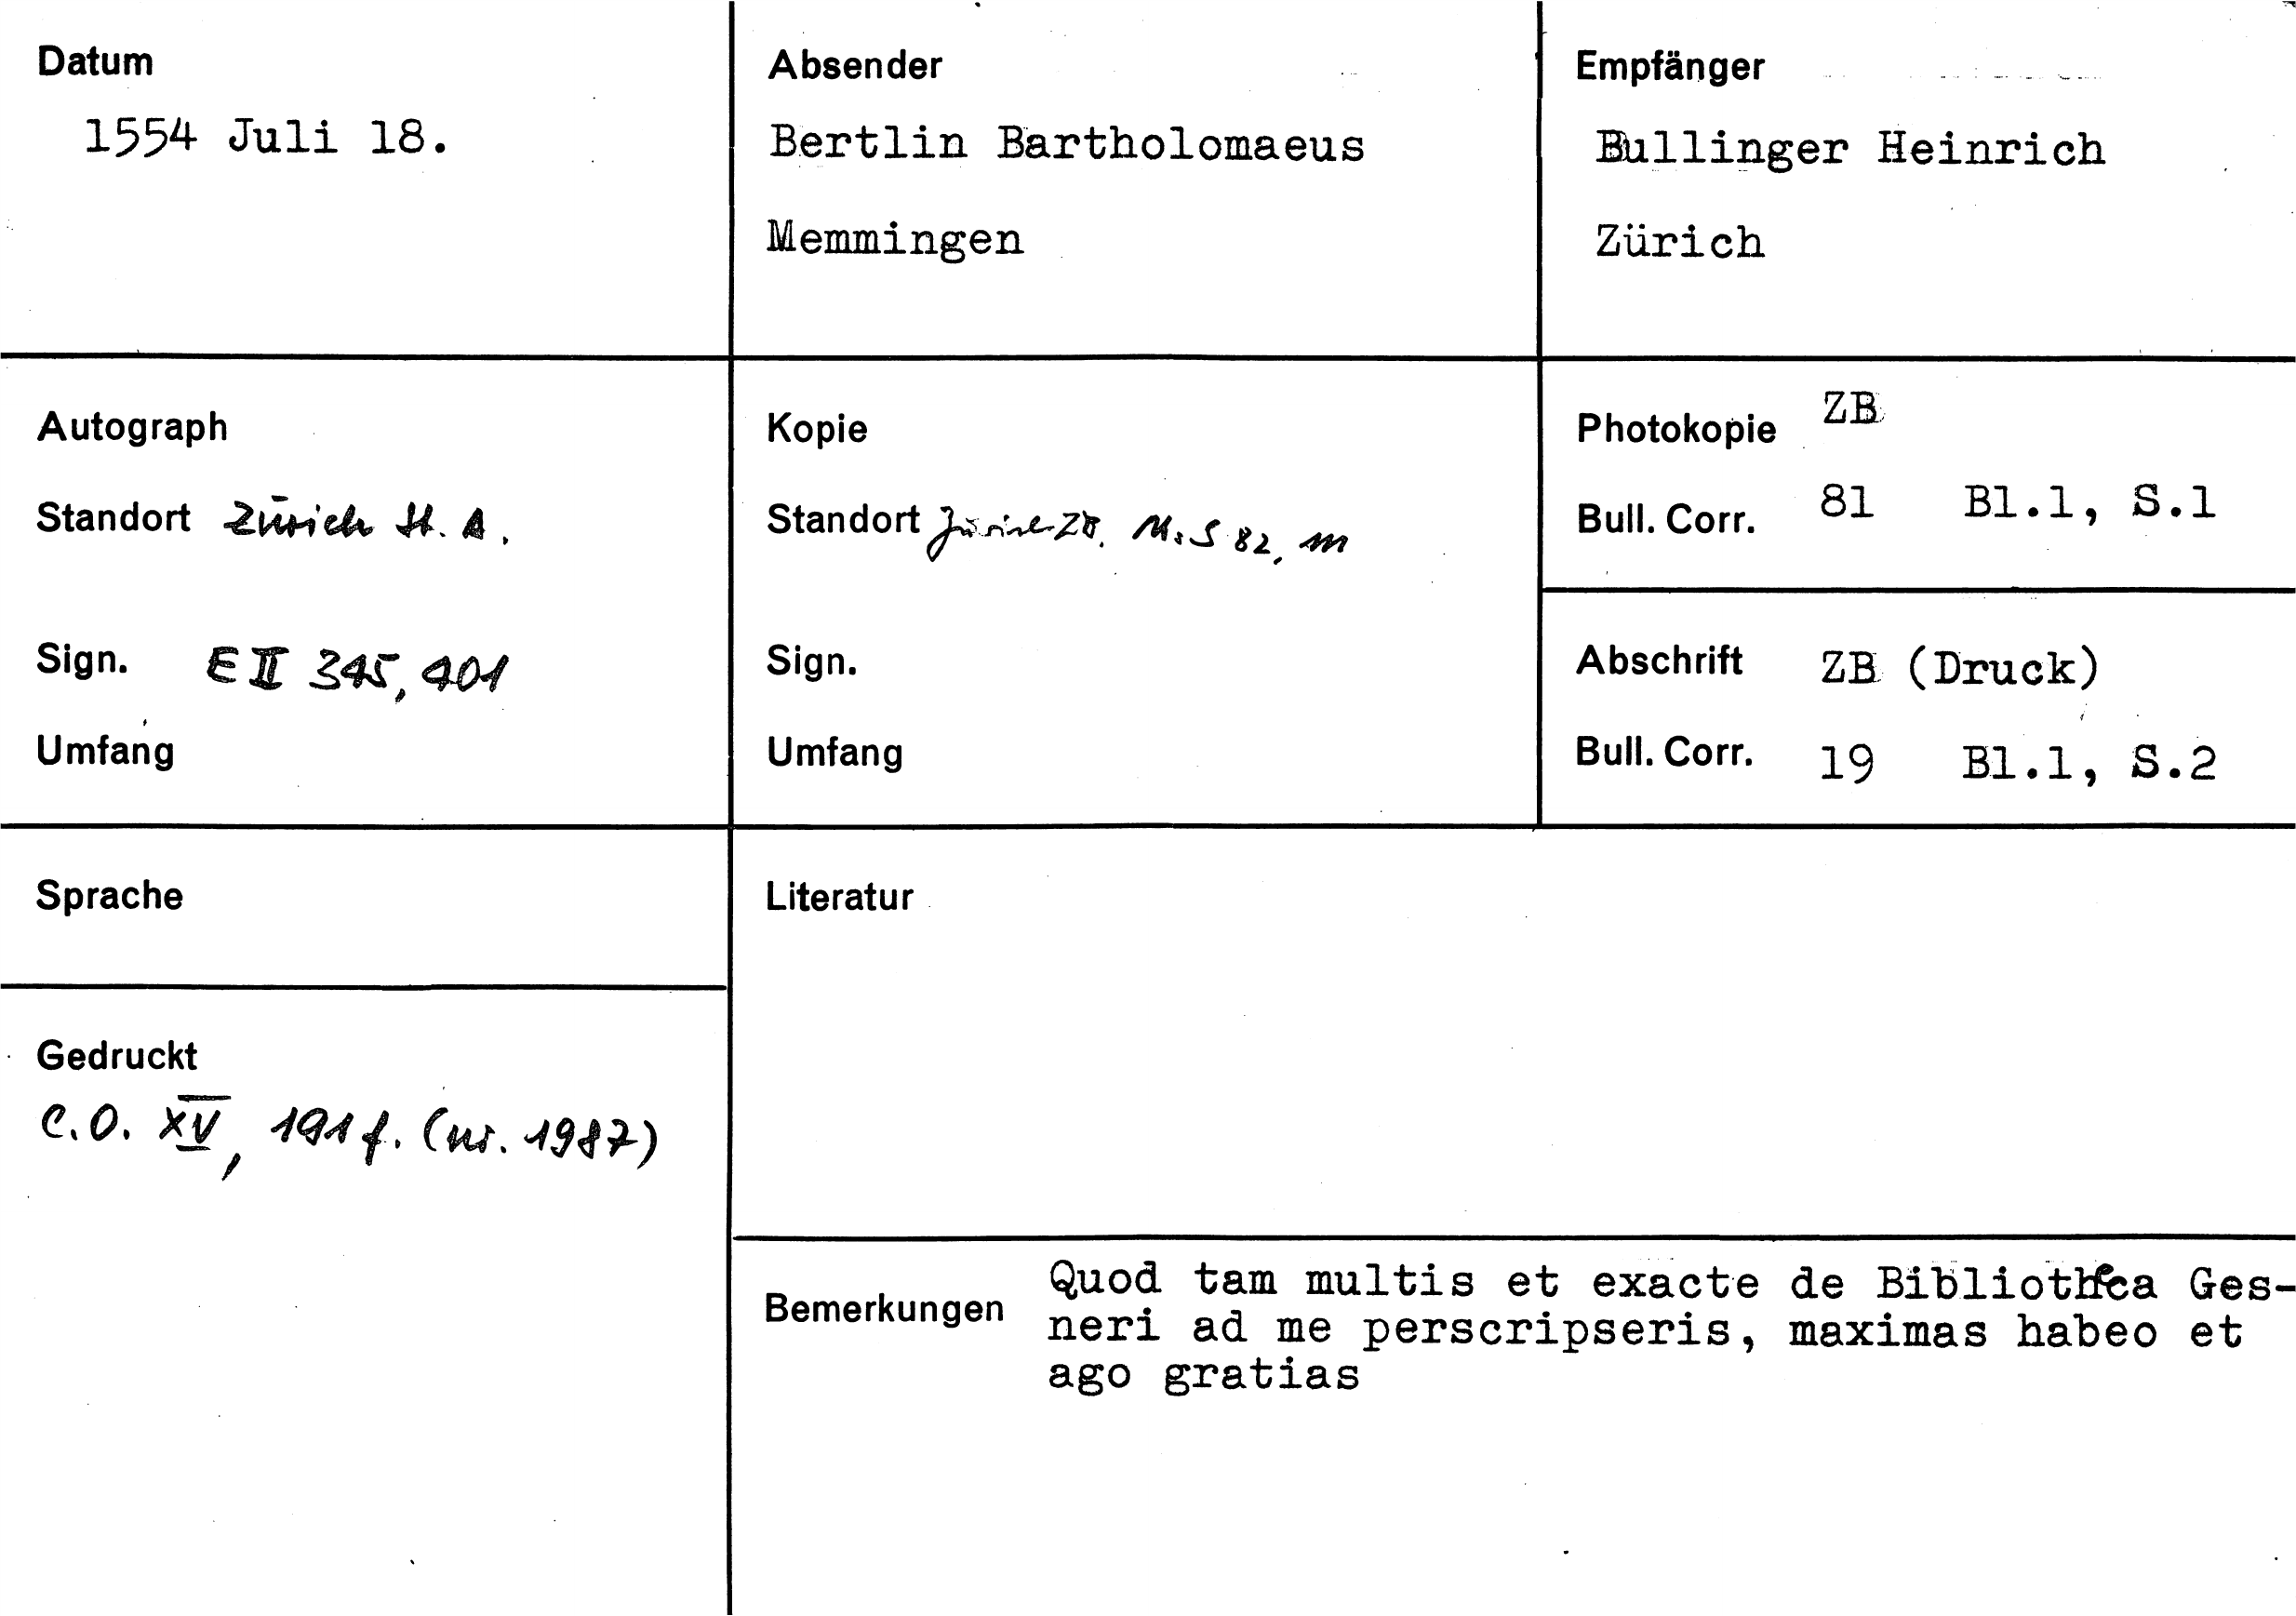 Datum
1554 Juli 18.
Absender
Bertlin Bartholomaeus
Memmingen
Empfänger
Bullinger Heinrich
Zürich
Autograph
Standort Zürich St. A.
Sign. E II 345, 401
Umfang
Kopie
Standort Zürich ZB. Ms S 82, m
Sign.
Umfang
Photokopie ZB
Bull. Corr. 81 Bl.1, S.1
Abschrift ZB (Druck)
Bull. Corr. 19 Bl.1, S.2
Sprache
Gedruckt
C.O. XV, 191 f. (nr. 1987)
Literatur
Bemerkungen
Quod tam multis et exacte de Bibliotheca Ges-
neri ad me perscripseris, maximas habeo et
ago gratias